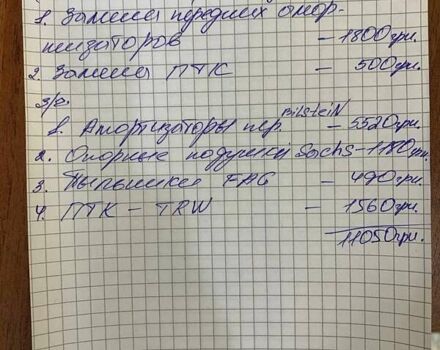 1. Замена передних амор-
тизаторов – 1800грн.
2. Замена ПТК – 500грн.
з/ч.
1. Амортизаторы пер. BilsteiN – 5520грн.
2. Опорные подушки Sachs – 1180грн.
3. Пыльники FAG – 490грн.
4. ПТК – TRW – 1560грн.
11050грн.